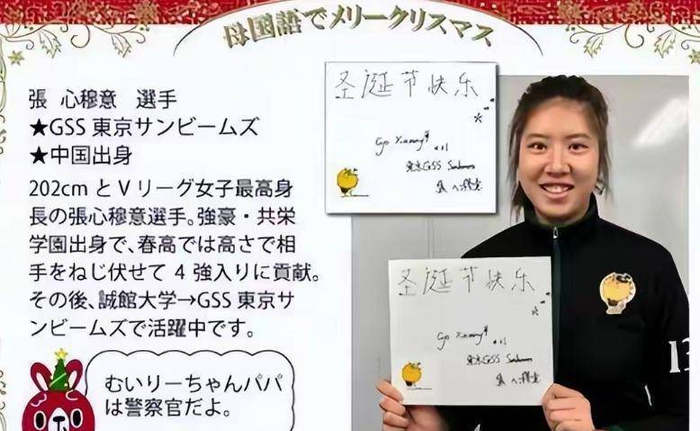 母国語でメリークリスマス
張 心穆意 選手
★GSS 東京サンビームズ
★中国出身
202cm と V リーグ女子最高身
長の張心穆意選手。強豪・共栄
学園出身で、春高では高さで相
手をねじ伏せて 4 強入りに貢献。
その後、誠館大学→GSS 東京サ
ンビームズで活躍中です。
むいりーちゃんパパ
は警察官だよ。
圣诞节快乐
東京GSS
圣诞节快乐
東京GSS
13